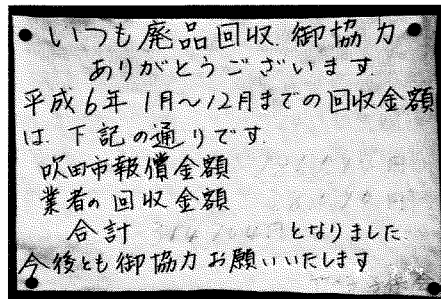 いつも廃品回収.御協力
ありがとうございます.
平成6年1月〜12月までの回収金額
は.下記の通りです.
吹田市報償金額
業者の回収金額
合計 となりました
今後とも御協力お願いいたします